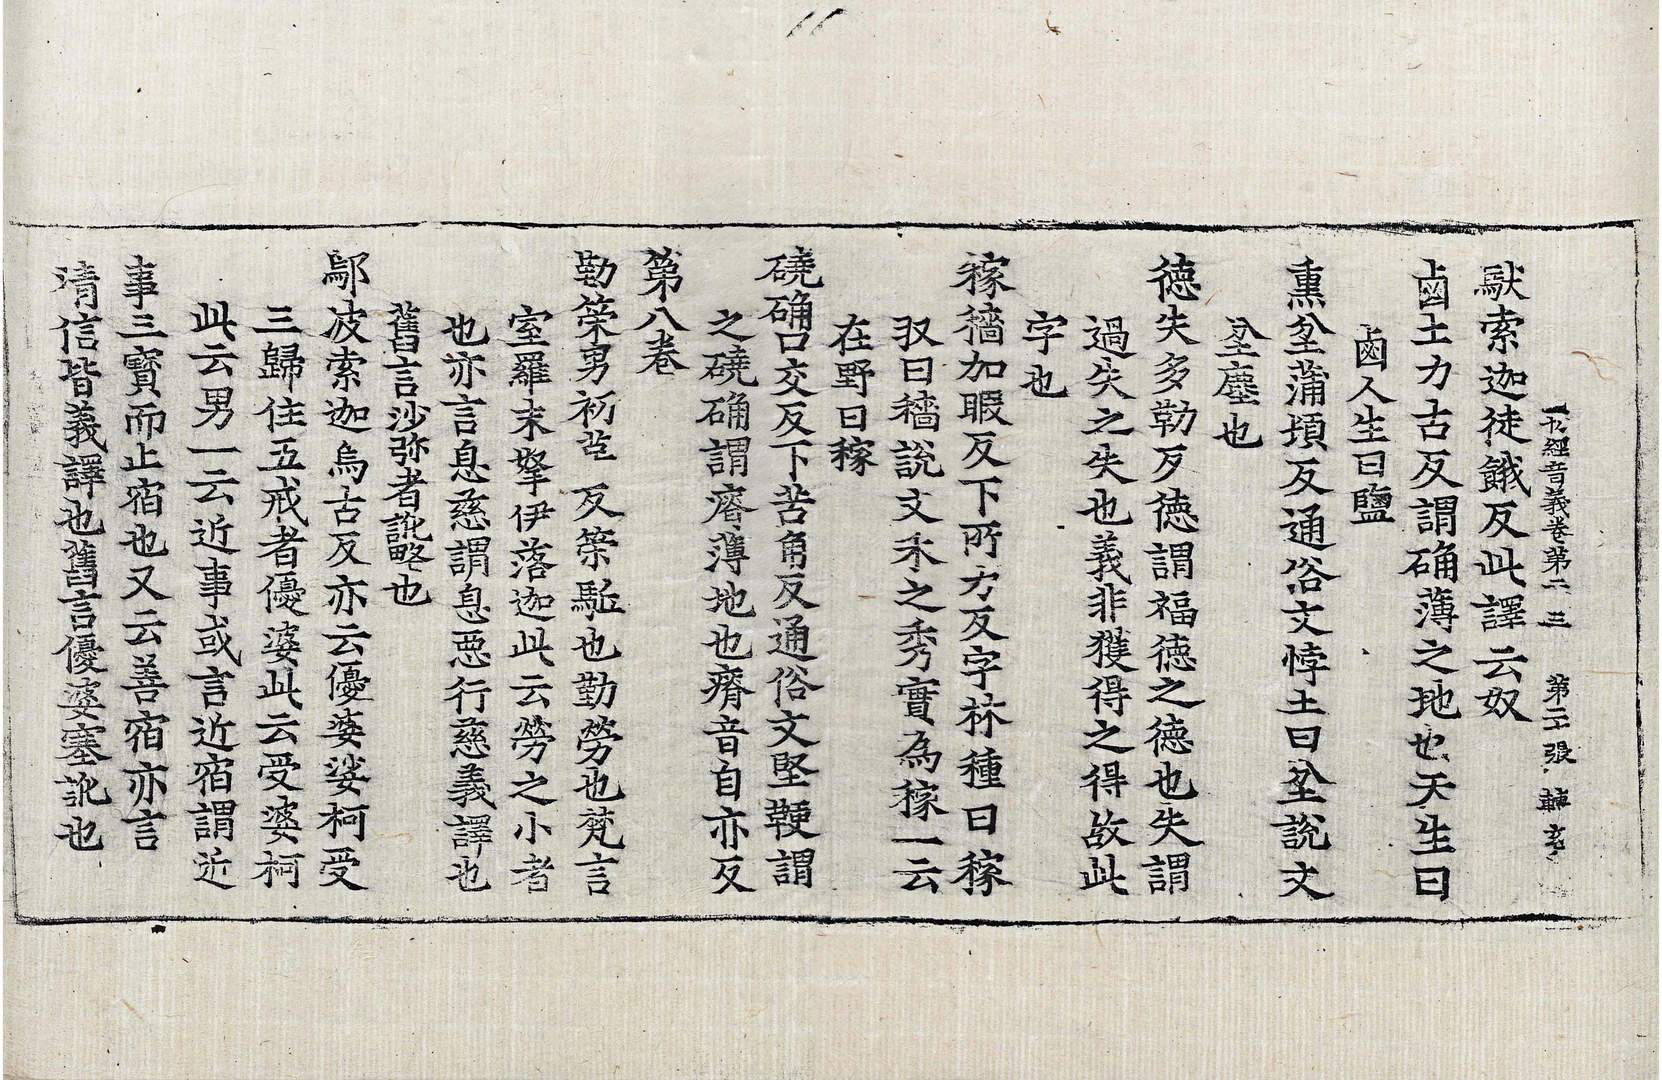 一切經音義卷第二十三 第二十張 韓玄
馱索迦徒餓反此譯云奴
鹵土力古反謂确薄之地也天生曰
鹵人生曰鹽
熏坌蒲頓反通俗文悖土曰坌說文
坌塵也
德失多勒反德謂福德之德也失謂
過失之失也義非獲得之得故此
字也
稼穡加暇反下所力反字林種曰稼
収曰穡說文禾之秀實為稼一云
在野曰稼
磽确口交反下苦角反通俗文堅鞕謂
之磽确謂瘠薄地也瘠音自亦反
第八卷
勤策男初革反策駈也勤勞也梵言
室羅末拏伊落迦此云勞之小者
也亦言息慈謂息惡行慈義譯也
舊言沙弥者訛略也
鄔波索迦烏古反亦云優婆娑柯受
三歸住五戒者優婆此云受婆柯
此云男一云近事或言近宿謂近
事三寶而止宿也又云善宿亦言
清信皆義譯也舊言優婆塞訛也